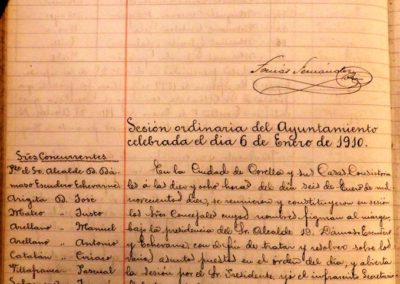 Tomás Fernández
Sesión ordinaria del Ayuntamiento
celebrada el dia 6 de Enero de 1910.
Sres Concurrentes
Pte el Sr. Alcalde D. Dá-
maso Escudero Echevarría
Arizita D. José
Mateo " Justo
Arellano " Manuel
Arellano " Antonio
Catalán " Ciriaco
Villafranca " Pascual
En la Ciudad de Corella y sus Casas Consistoria
les á las diez y ocho horas del dia seis de Enero de mil
novecientos diez, se reunieron y constituyeron en sesión
los Sres Concejales cuyos nombres figuran al margen
bajo la presidencia del Sr. Alcalde D. Dámaso Escudero
y Echevarria, con objeto de tratar y resolver sobre los
varios asuntos puestos en el orden del dia, y abierta
la Sesión por el Sr. Presidente, yo el infrascrito Secretario